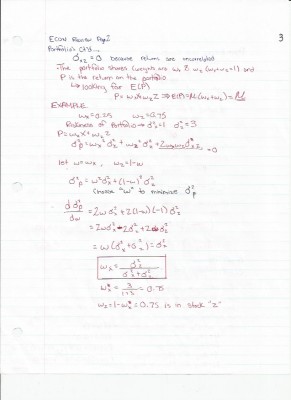 3
ECON Review Page 2
Portfolio's Ct'd...
σxz = 0 because returns are uncorrelated
-The portfolio shares (weights are wx & wz (wx+wz=1) and
P is the return on the portfolio
↳ looking for E(P)
P = wxX + wzZ ⇒ E(P) = M(wx+wz) = M
EXAMPLE
wx = 0.25 wz = 0.75
Riskiness of Portfolio → σ²x = 1 σ²z = 3
P = wxX + wzZ
σ²p = wx² σ²x + wz² σ²z + 2wxwzσxz = 0
let w = wx, wz = 1-w
σ²p = w²σ²x + (1-w)² σ²z
Choose "w" to minimize σ²p
dσ²p/dw = 2wσ²x + 2(1-w)(-1)σ²z
= 2wσ²x - 2σ²z + 2wσ²z
= w(σ²x + σ²z) = σ²z
wx = σ²z / (σ²x + σ²z)
wx* = 3/(1+3) = 0.75
wz = 1 - wx* = 0.75 is in stock "z"